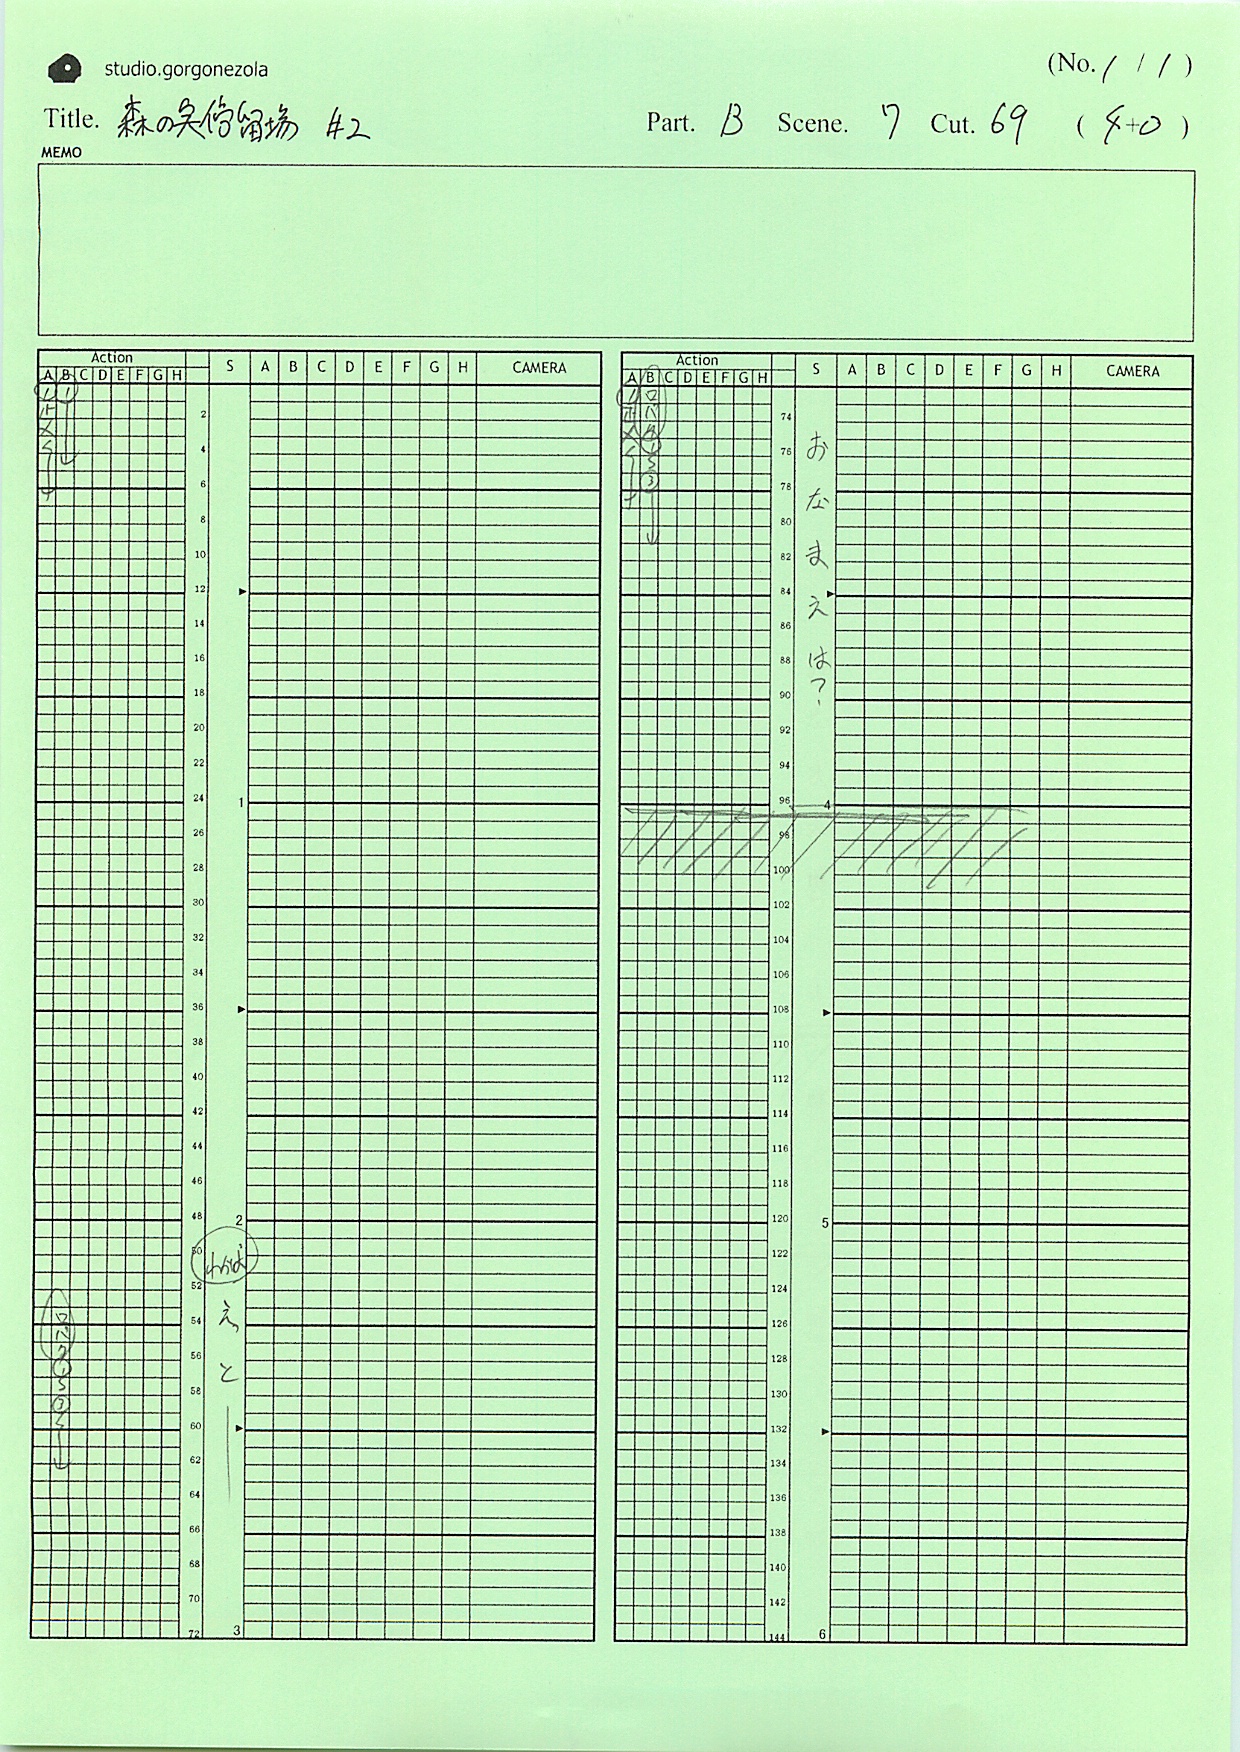 studio.gorgonezola
(No. 1 / 1 )
Title. 森の 停留場 #2
Part. B Scene. 7 Cut. 69 ( 4+0 )
MEMO
Action
A B C D E F G H S A B C D E F G H CAMERA
1 1
2
4
6
8
10
12
14
16
18
20
22
24 1
26
28
30
32
34
36
38
40
42
44
46
48 2
50
わかば
52
54
え、
56
と
58
60
62
64
66
68
70
72 3
口パク
1
3
Action
A B C D E F G H S A B C D E F G H CAMERA
1
口パク
1
3
74
76
78
80
82
84
86
88
90
92
94
96 4
98
100
102
104
106
108
110
112
114
116
118
120 5
122
124
126
128
130
132
134
136
138
140
142
144 6
おなまえは?